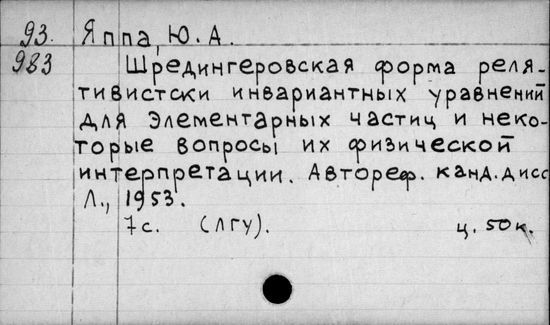 93. Яппа, Ю. А.
983 Шредингеровская форма реля-
тивистски инвариантных уравнений
для элементарных частиц и неко-
торые вопросы их физической
интерпретации. Автореф. канд. дисс
Л., 1953.
7с. (ЛГУ). ц. 50к.